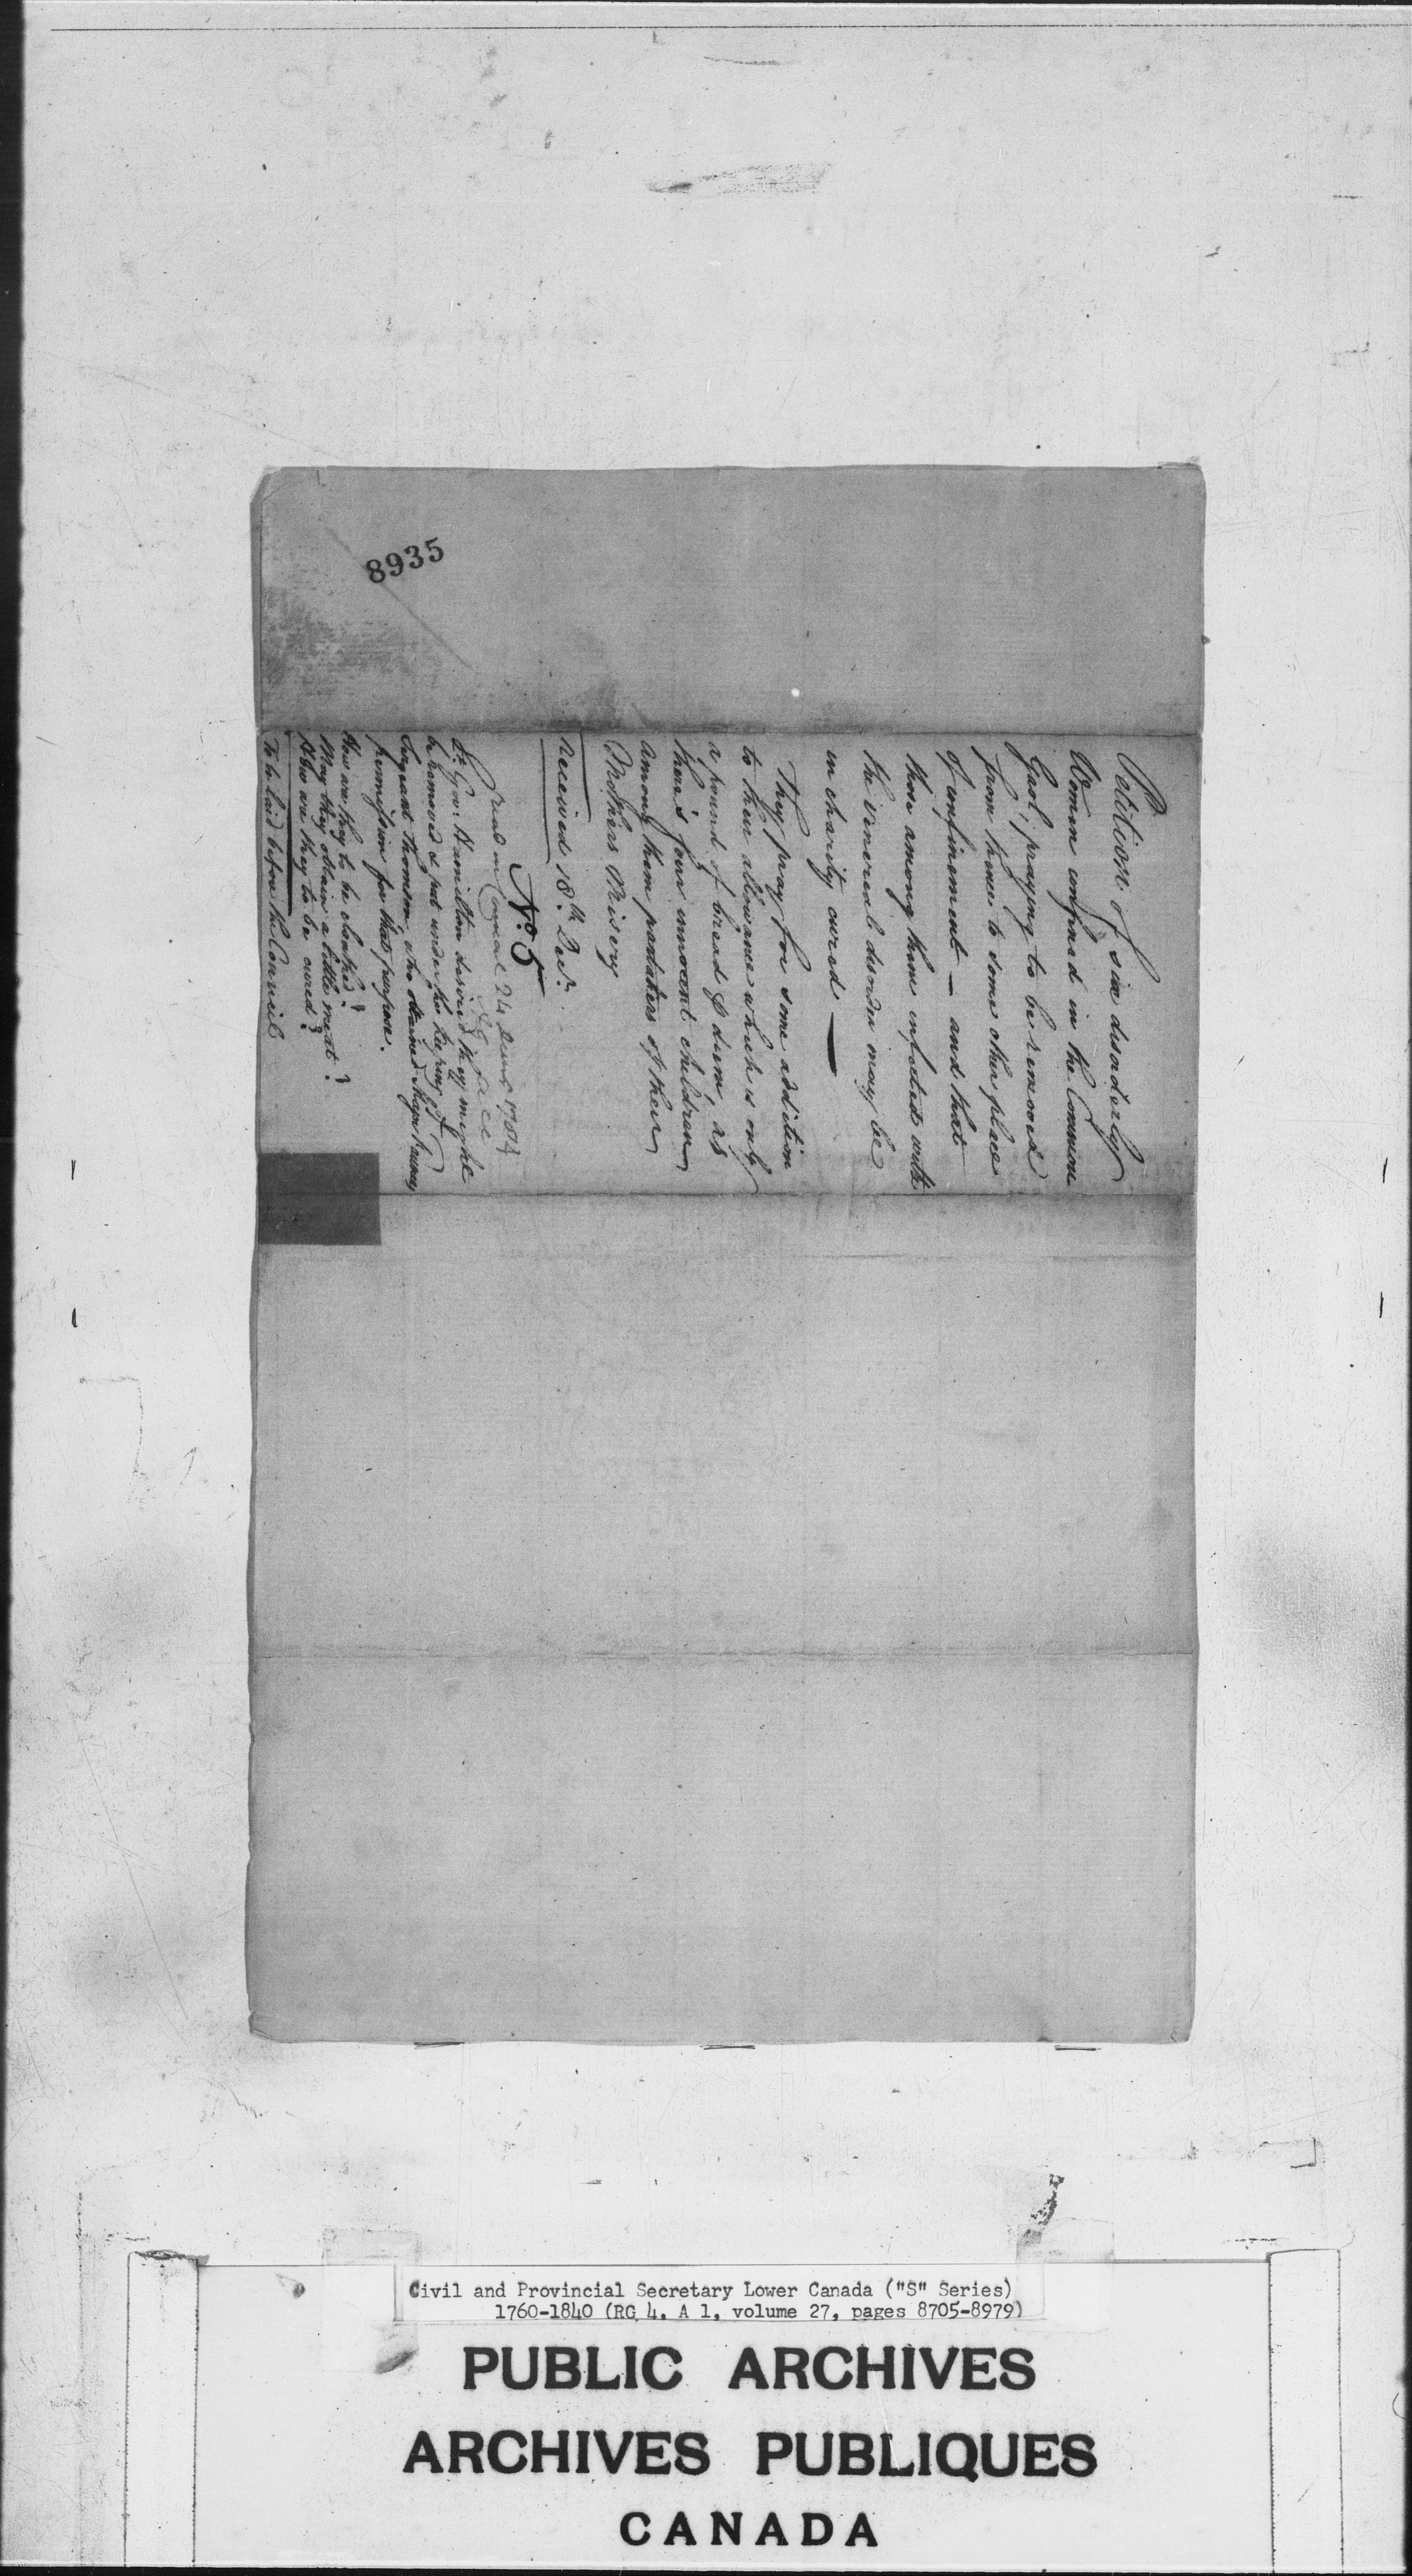 8935
Petition of six disorderly
Women confined in the Common
Gaol, praying to be removed
from thence to some other place
of confinement — and that
those among them infected with
the venereal disorder may be
in charity cured —
They pray for some addition
to their allowance which is only
a pound of bread P diem, as
there's four innocent children
among them partakers of their
Mothers Misery
received 18th Decr
No. 5
read in Council 24 Decr 1784
Lt Gov. Hamilton desired they might
be removed & put under the keeping of
Sergeant Thomson, who obtained Major
permission for that purpose.
How are they to be cloathed?
May they obtain a little meat?
How are they to be cured?
To be laid before the Council
Civil and Provincial Secretary Lower Canada ("S" Series)
1760-1840 (RG 4, A 1, volume 27, pages 8705-8979)
PUBLIC ARCHIVES
ARCHIVES PUBLIQUES
CANADA